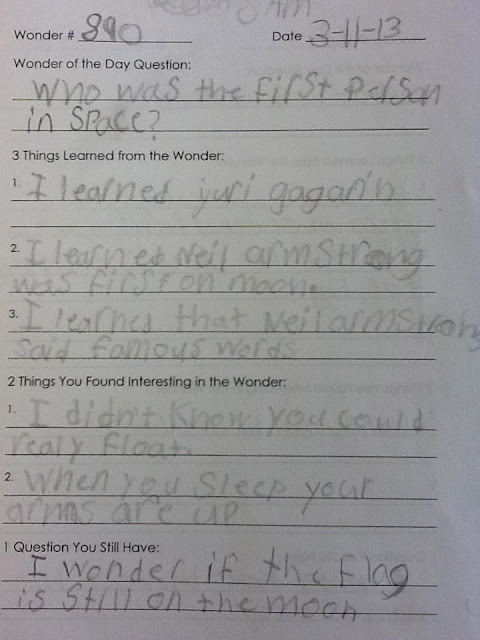 Wonder # 890 Date 3-11-13
Wonder of the Day Question:
Who was the first Person
in Space?
3 Things Learned from the Wonder:
1. I learned yuri gagarin
2. I learned Neil armstrong
was first on moon.
3. I learned that Neil armstrong
said famous words
2 Things You Found Interesting in the Wonder:
1. I didn't know you could
realy float.
2. When you Sleep your
arms are up
1 Question You Still Have:
I wonder if the flag
is still on the moon